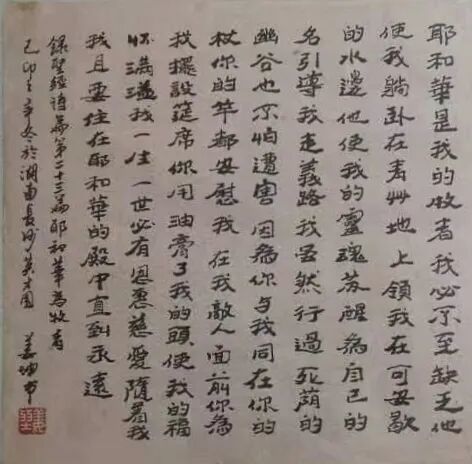 耶和華是我的牧者我必不至缺乏他
使我躺卧在青艸地上領我在可安歇
的水邊他使我的靈魂苏醒為自己的
名引導我走義路我虽然行過死蔭的
幽谷也不怕遭害因為你与我同在你的
杖你的竿都安慰我在我敵人面前你為
我擺設筵席你用油膏了我的頭使我的福
杯滿溢我一生一世必有恩惠慈愛隨着我
我且要住在耶和華的殿中直到永遠
錄聖經诗篇第二十三篇耶和華為牧者
己卯冬於湖南長沙英才園 姜坤书